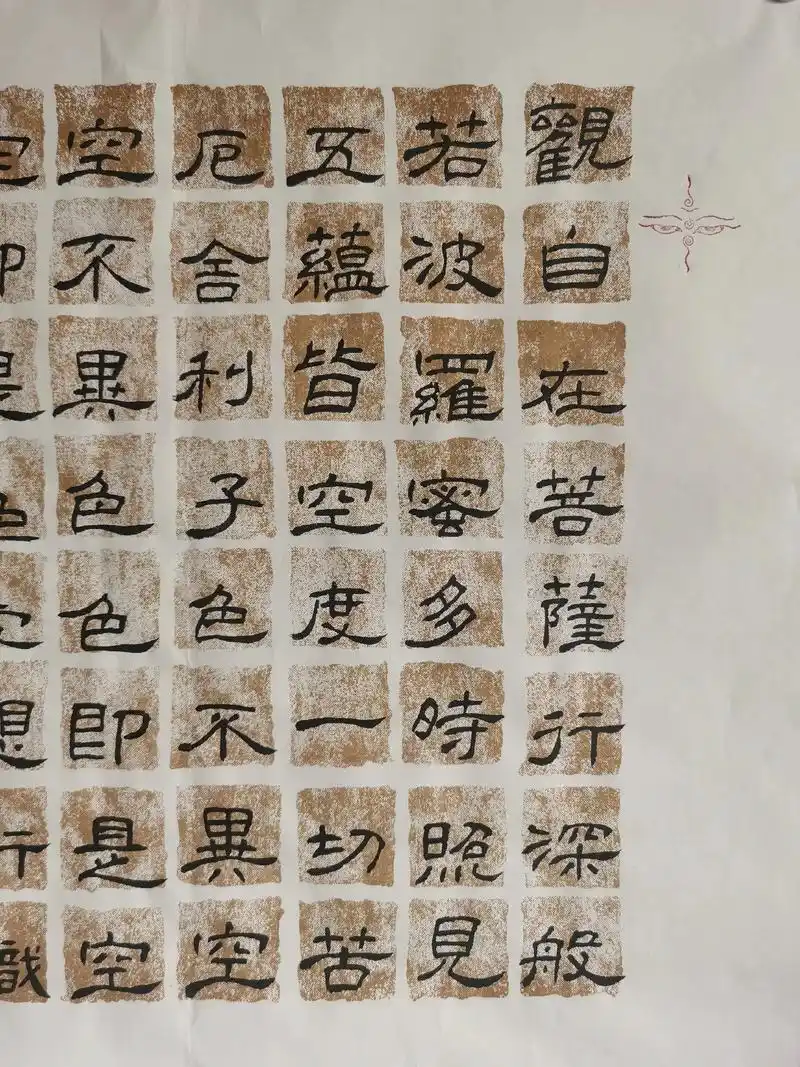 觀自在菩薩行深般
若波羅蜜多時照見
五蘊皆空度一切苦
厄舍利子色不異空
空不異色色即是空
即是色想行識